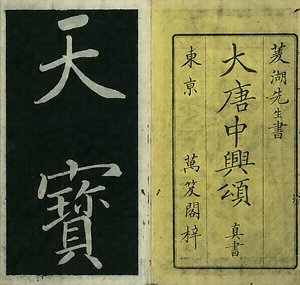 菱湖先生書
大唐中興頌 真書
東京 萬笈閣梓
天寶